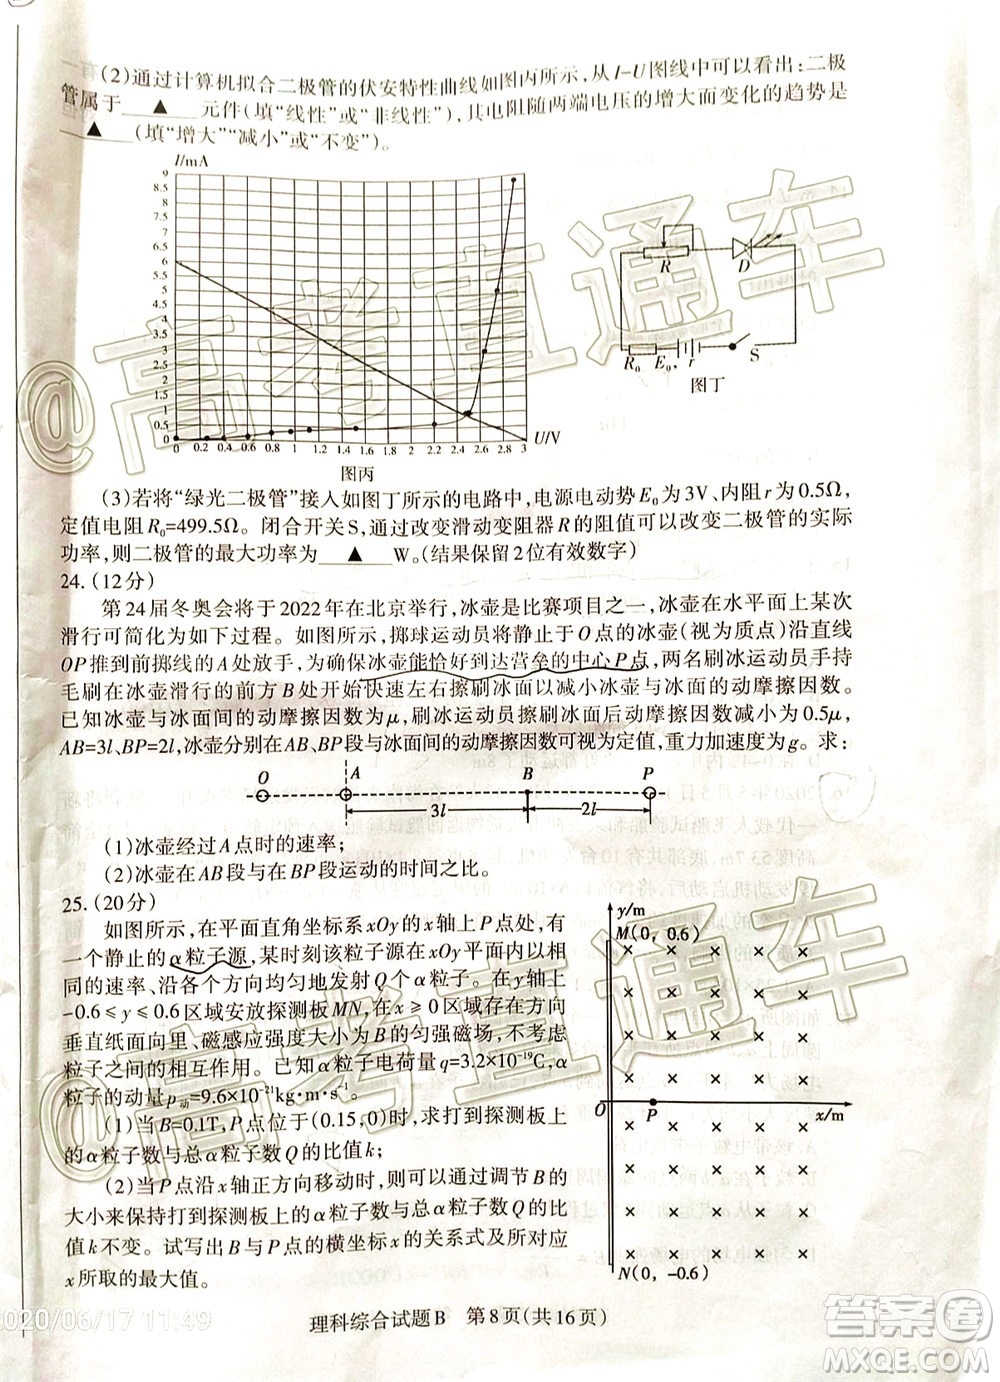 (2)通过计算机拟合二极管的伏安特性曲线如图丙所示，从I-U图线中可以看出：二极
管属于 ▲ 元件(填“线性”或“非线性”)，其电阻随两端电压的增大而变化的趋势是
▲ (填“增大”“减小”或“不变”)。
I/mA
9
8.5
8
7.5
7
6.5
6
5.5
5
4.5
4
3.5
3
2.5
2
1.5
1
0.5
0
0 0.2 0.4 0.6 0.8 1 1.2 1.4 1.6 1.8 2 2.2 2.4 2.6 2.8 3
U/V
图丙
R D
R₀ E₀, r S
图丁
(3)若将“绿光二极管”接入如图丁所示的电路中，电源电动势E₀为3V、内阻r为0.5Ω，
定值电阻R₀=499.5Ω。闭合开关S，通过改变滑动变阻器R的阻值可以改变二极管的实际
功率，则二极管的最大功率为 ▲ W。(结果保留2位有效数字)
24.(12分)
第24届冬奥会将于2022年在北京举行，冰壶是比赛项目之一，冰壶在水平面上某次
滑行可简化为如下过程。如图所示，掷球运动员将静止于O点的冰壶(视为质点)沿直线
OP推到前掷线的A处放手，为确保冰壶能恰好到达营垒的中心P点，两名刷冰运动员手持
毛刷在冰壶滑行的前方B处开始快速左右擦刷冰面以减小冰壶与冰面的动摩擦因数。
已知冰壶与冰面间的动摩擦因数为μ，刷冰运动员擦刷冰面后动摩擦因数减小为0.5μ，
AB=3l，BP=2l，冰壶分别在AB、BP段与冰面间的动摩擦因数可视为定值，重力加速度为g。求：
O A B P
3l 2l
(1)冰壶经过A点时的速率；
(2)冰壶在AB段与在BP段运动的时间之比。
25.(20分)
如图所示，在平面直角坐标系xOy的x轴上P点处，有
一个静止的α粒子源，某时刻该粒子源在xOy平面内以相
同的速率、沿各个方向均匀地发射Q个α粒子。在y轴上
-0.6≤y≤0.6区域安放探测板MN，在x≥0区域存在方向
垂直纸面向里、磁感应强度大小为B的匀强磁场，不考虑
粒子之间的相互作用。已知α粒子电荷量q=3.2×10⁻¹⁹C，α
粒子的动量p动=9.6×10⁻²¹kg·m·s⁻¹。
(1)当B=0.1T，P点位于(0.15,0)时，求打到探测板上
的α粒子数与总α粒子数Q的比值k；
(2)当P点沿x轴正方向移动时，则可以通过调节B的
大小来保持打到探测板上的α粒子数与总α粒子数Q的比
值k不变。试写出B与P点的横坐标x的关系式及所对应
x所取的最大值。
y/m
M(0, 0.6)
O P x/m
N(0, -0.6)
理科综合试题B 第8页(共16页)
2020/06/17 11:49
@高考直通车
@高考直通车
答案圈
MXQE.COM